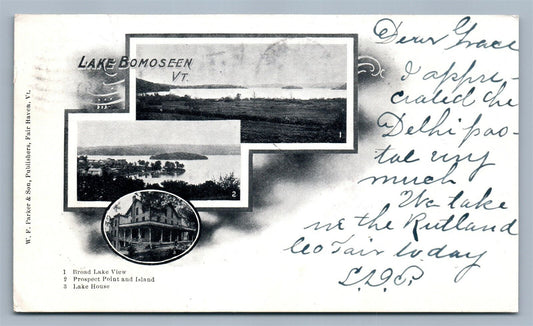 LAKE BOMOSEEN
VT.
1
2
W. F. Parker & Son, Publishers, Fair Haven, Vt.
1 Broad Lake View
2 Prospect Point and Island
3 Lake House
Dear Grace
I appre-
ciated the
Delhi pos-
tal very
much
We take
in the Rutland
Co Fair today